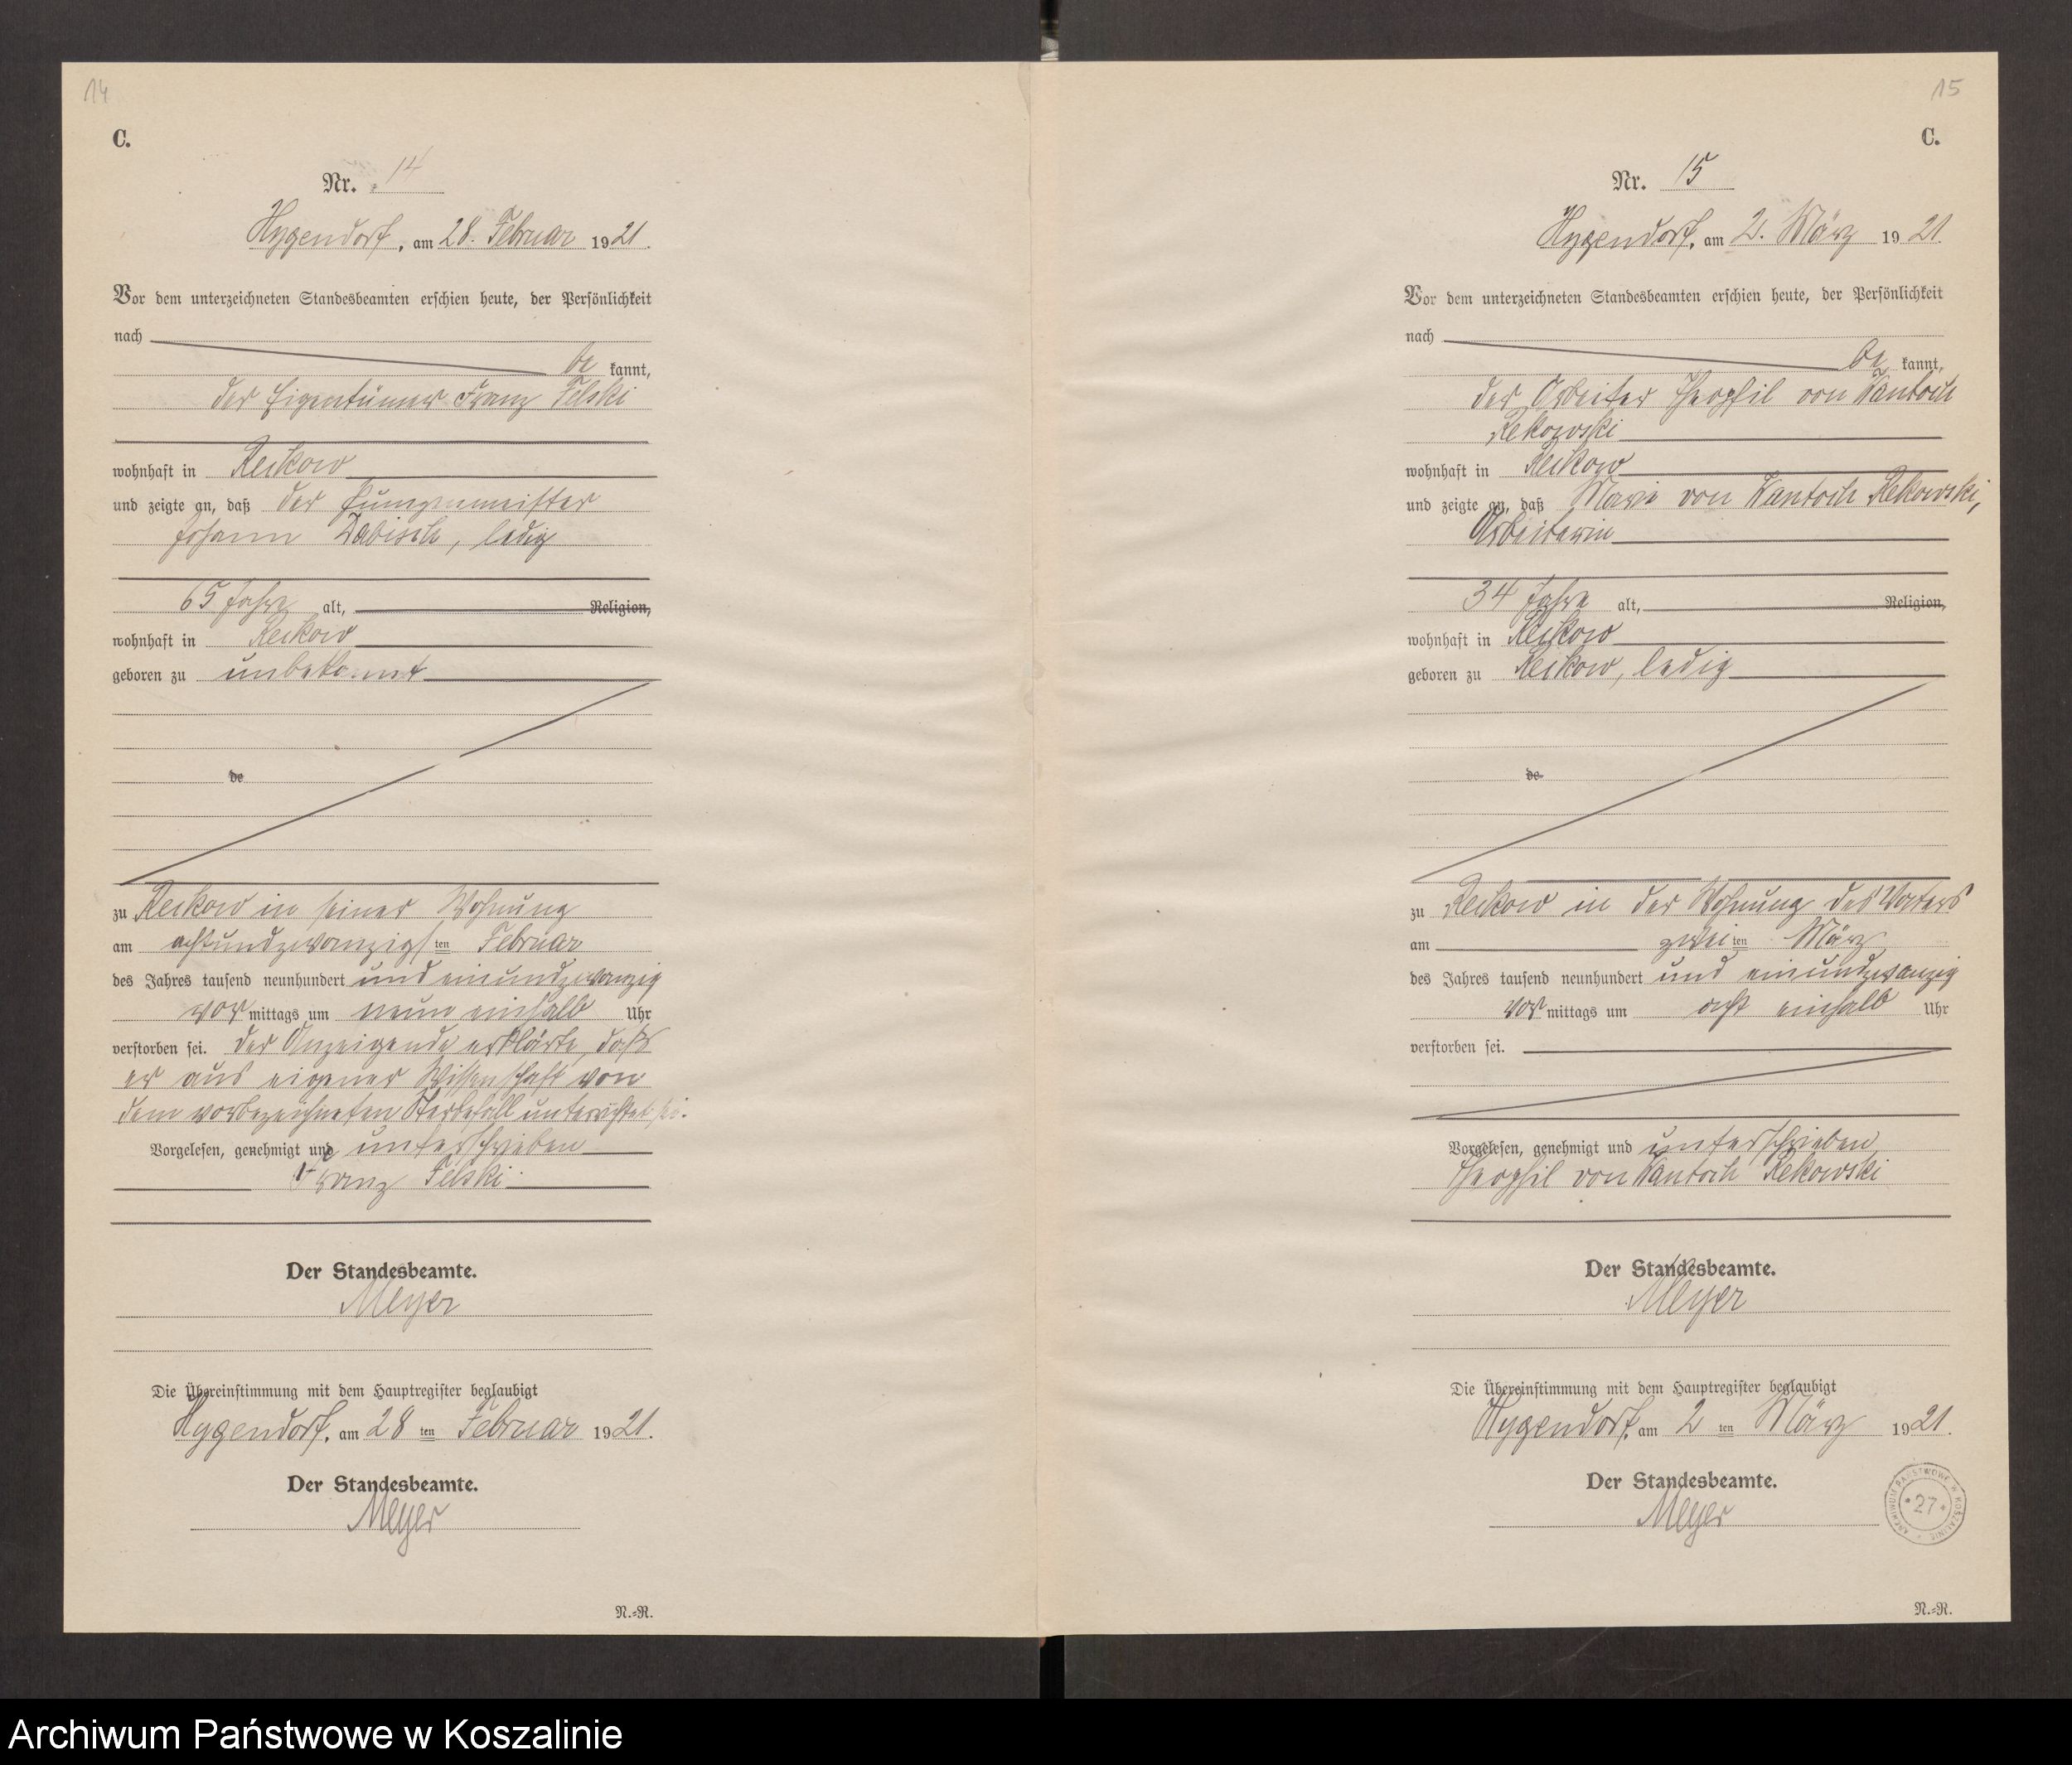 14
C.
Nr. 14
Hygendorf, am 28. Februar 1921.
Vor dem unterzeichneten Standesbeamten erschien heute, der Persönlichkeit
nach
be kannt,
der Eigentümer Franz Felski
wohnhaft in Reckow
und zeigte an, daß der
Johann ledig
65 Jahre alt, Religion,
wohnhaft in Reckow
geboren zu unbekannt
de
zu Reckow in seiner Wohnung
am achtundzwanzigsten Februar
des Jahres tausend neunhundert und einundzwanzig
vor mittags um neun einhalb Uhr
verstorben sei. Der Anzeigende erklärte, daß
er aus eigener Wissenschaft von
dem vorbezeichneten Sterbefall unterrichtet sei.
Vorgelesen, genehmigt und unterschrieben
Franz Felski
Der Standesbeamte.
Meyer
Die Übereinstimmung mit dem Hauptregister beglaubigt
Hygendorf, am 28 ten Februar 1921.
Der Standesbeamte.
Meyer
N.-R.
15
C.
Nr. 15
Hygendorf, am 2. März 1921.
Vor dem unterzeichneten Standesbeamten erschien heute, der Persönlichkeit
nach
be kannt,
der Arbeiter Theophil von Wantoch
Rekowski
wohnhaft in Reckow
und zeigte an, daß Marie von Wantoch Rekowski,
Arbeiterin
34 Jahre alt, Religion,
wohnhaft in Reckow
geboren zu Reckow, ledig
de
zu Reckow in der Wohnung des Vaters
am zweiten März
des Jahres tausend neunhundert und einundzwanzig
vor mittags um acht einhalb Uhr
verstorben sei.
Vorgelesen, genehmigt und unterschrieben
Theophil von Wantoch Rekowski
Der Standesbeamte.
Meyer
Die Übereinstimmung mit dem Hauptregister beglaubigt
Hygendorf, am 2 ten März 1921.
Der Standesbeamte.
Meyer
ARCHIWUM PAŃSTWOWE W KOSZALINIE
* 27 *
N.-R.
Archiwum Państwowe w Koszalinie